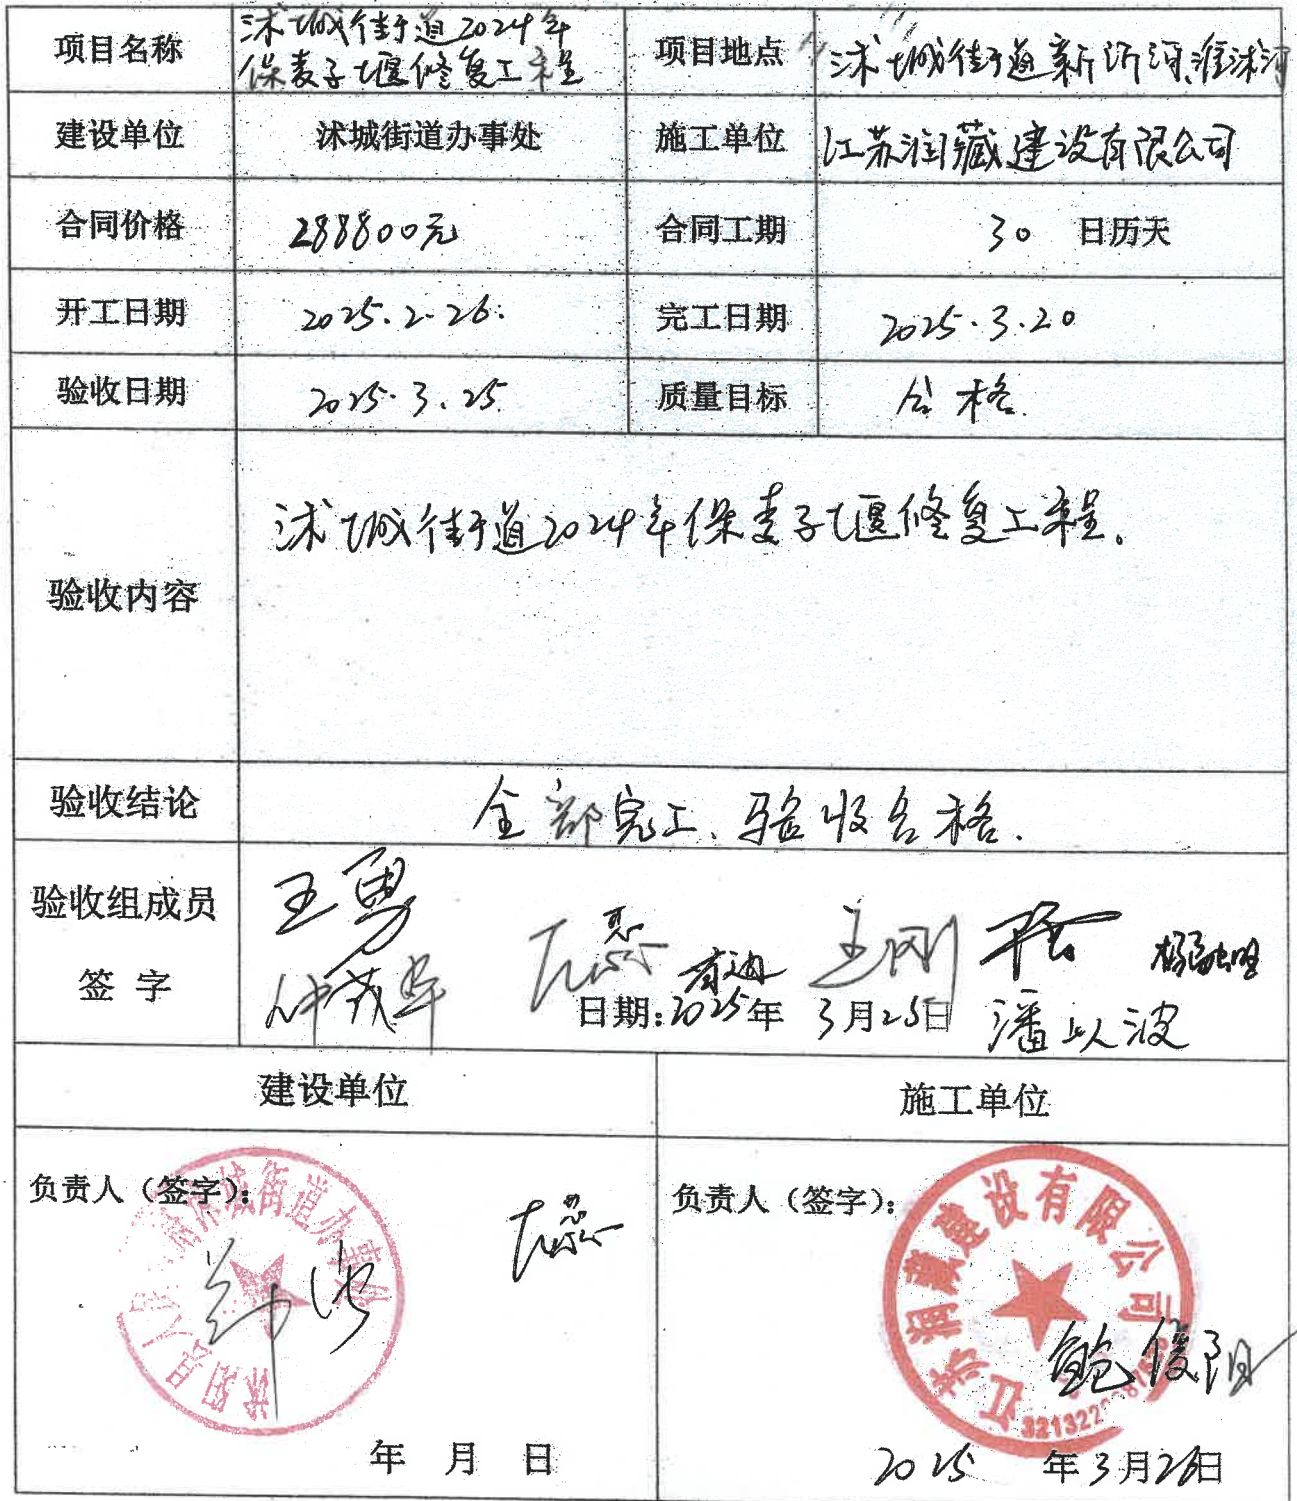 项目名称 沭城街道2024年
保麦子堰修复工程 项目地点 沭城街道新沂河、淮沭河
建设单位 沭城街道办事处 施工单位 江苏润藏建设有限公司
合同价格 288800元 合同工期 30 日历天
开工日期 2025.2.26. 完工日期 2025.3.20
验收日期 2025.3.25. 质量目标 合格.
验收内容 沭城街道2024年保麦子堰修复工程.
验收结论 全部完工、验收合格.
验收组成员
签 字
王勇
仲茂华 王刚
日期:2025年 3月25日 潘以波
建设单位 施工单位
负责人（签字）： 负责人（签字）：
沭城街道办事处
江苏润藏建设有限公司
鲍俊阳
年 月 日 2025 年3月26日